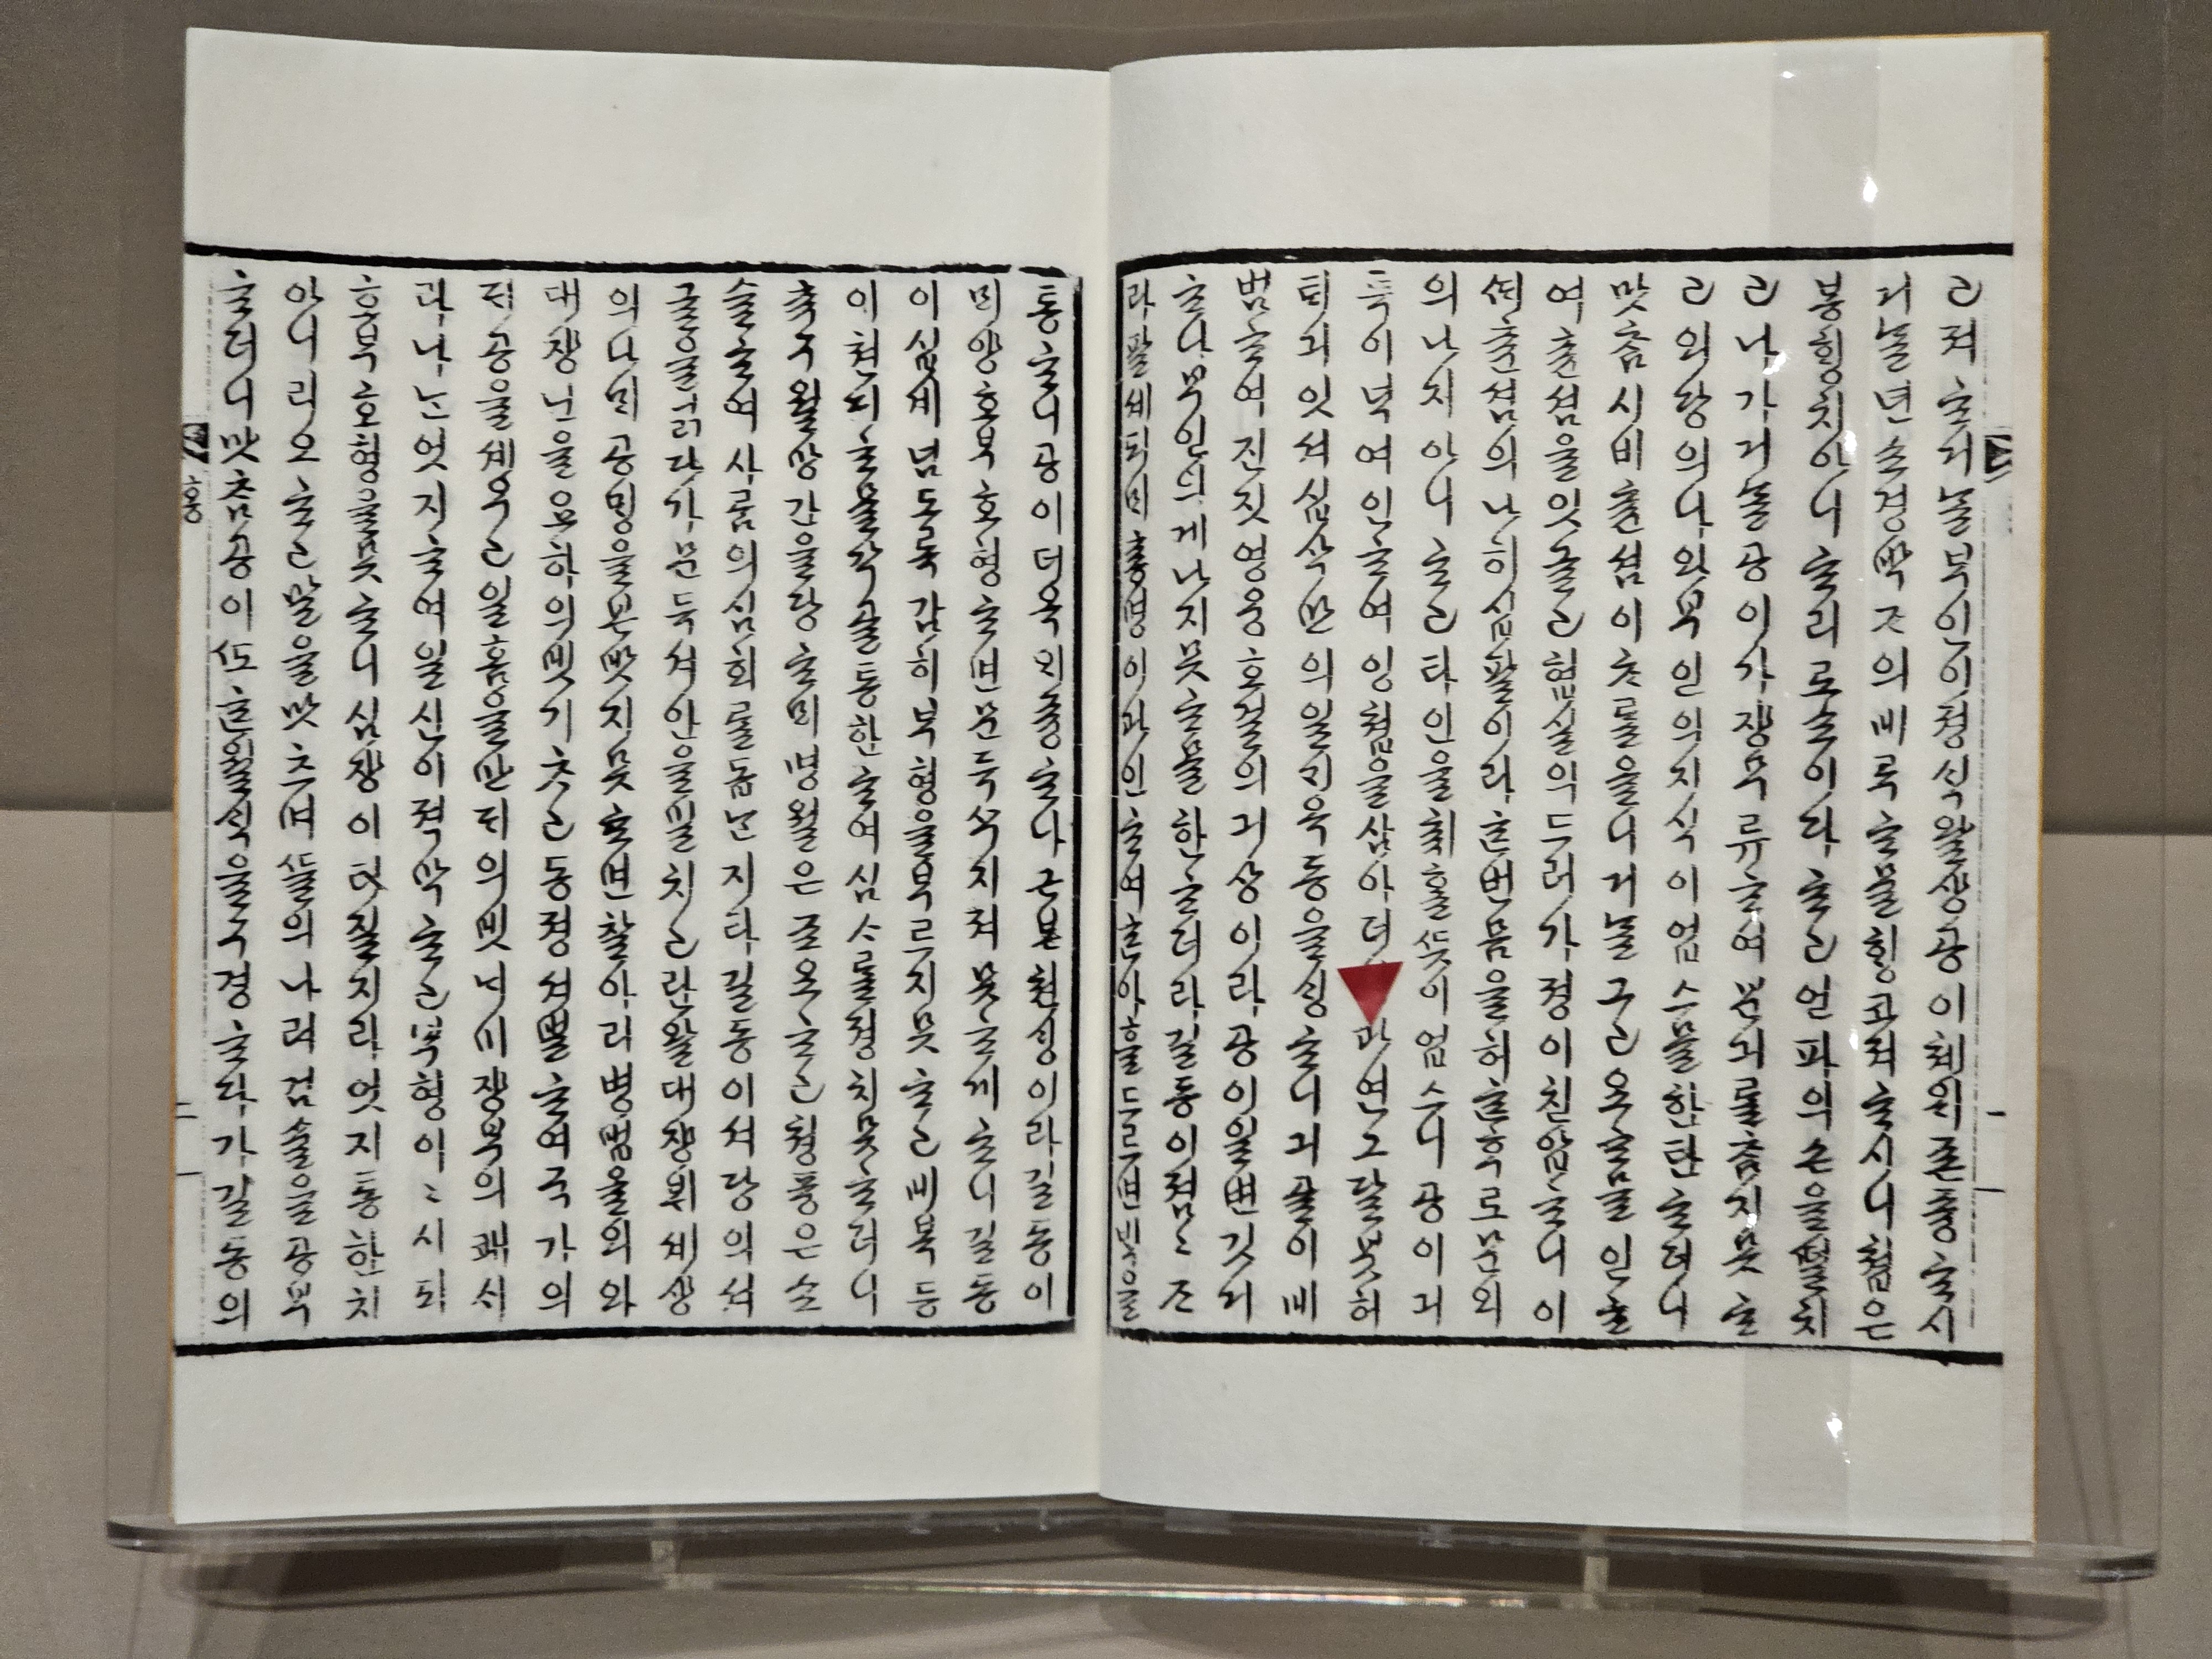 고져ᄒᆞ거ᄂᆞᆯ부인이졍ᄉᆡᆨ왈샹공이쳬위존즁ᄒᆞ시
거ᄂᆞᆯ년쇼경박ᄌᆞ의비루ᄒᆞ믈ᄒᆡᆼ코져ᄒᆞ시니쳡은
봉ᄒᆡᆼ치아니ᄒᆞ리로소이다ᄒᆞ고언파의손을ᄯᅥᆯ치
고나가거ᄂᆞᆯ공이가쟝무류ᄒᆞ여분긔ᄅᆞᆯᄎᆞᆷ지못ᄒᆞ
고외당의나와부인의지식이업스믈한탄ᄒᆞ더니
맛ᄎᆞᆷ시비츈셤이ᄎᆞᄅᆞᆯ올니거ᄂᆞᆯ그고요ᄒᆞᆷ믈인ᄒᆞ
여츈셤을잇글고협실의드러가졍이친압ᄒᆞ니이
ᄯᆡ츈셤의나히십팔이라ᄒᆞᆫ번몸을허ᄒᆞᆫ후로문외
의나지아니ᄒᆞ고타인을ᄎᆔᄒᆞᆯᄯᅳᆺ이업스니공이긔
특이넉여인ᄒᆞ여잉쳡을삼아더 과연그달븟허
ᄐᆡ긔잇셔십삭만의일ᄀᆡ옥동을ᄉᆡᆼᄒᆞ니긔골이비
범ᄒᆞ여진짓영웅호걸의긔상이라공이일변깃거
ᄒᆞ나부인의게나지못ᄒᆞ믈한ᄒᆞ더라길동이졈〻ᄌᆞ
라팔셰되ᄆᆡ춍명이과인ᄒᆞ여ᄒᆞ나흘드르면ᄇᆡᆨ을
통ᄒᆞ니공이더욱ᄋᆡ즁ᄒᆞ나근본쳔ᄉᆡᆼ이라길동이
ᄆᆡ양호부호형ᄒᆞ면문득ᄭᅮ지져못ᄒᆞ게ᄒᆞ니길동
이십셰넘도록감히부형을부르지못ᄒᆞ고비복등
이쳔ᄃᆡᄒᆞ믈각골통한ᄒᆞ여심ᄉᆞᄅᆞᆯ졍치못ᄒᆞ더니
츄구월망간을당ᄒᆞᄆᆡ명월은조요ᄒᆞ고쳥풍은소
슬ᄒᆞ여사ᄅᆞᆷ의심회ᄅᆞᆯ돕ᄂᆞᆫ지라길동이셔당의셔
글을닑다가문득셔안을밀치고탄왈대쟝뷔셰샹
의나ᄆᆡ공ᄆᆡᆼ을본밧지못ᄒᆞ면찰아리병법을외와
대쟝닌을요하의빗기ᄎᆞ고동졍셔벌ᄒᆞ여국가의
ᄃᆡ공을셰우고일홈을만ᄃᆡ의빗ᄂᆡ미쟝부의쾌ᄉᆡ
라나ᄂᆞᆫ엇지ᄒᆞ여일신이젹막ᄒᆞ고부형이〻시되
호부호형을못ᄒᆞ니심쟝이터질지라엇지통한치
아니리오ᄒᆞ고말을맛ᄎᆞ며ᄯᅳᆯ의나려검슐을공부
ᄒᆞ더니맛ᄎᆞᆷ공이ᄯᅩᄒᆞᆫ월ᄉᆡᆨ을구경ᄒᆞ다가길동의
홍